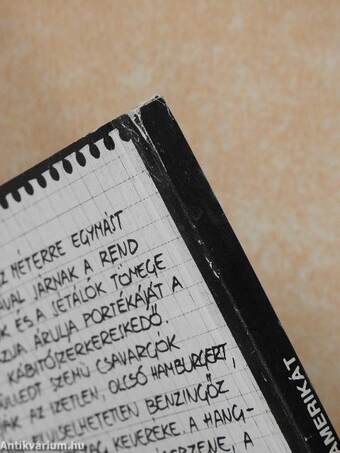 MÉTERRE EGYMÁST
JÁRNAK A REND
ÉS A SÉTÁLÓK TÖMEGE
ÁRULJA PORTÉKÁJÁT A
KÁBÍTÓSZERKERESKEDŐ.
SZEMŰ CSAVARGÓK
AZ ÍZETLEN, OLCSÓ HAMBURGERT,
BENZINGŐZ
KEVEREKE. A HANG-
A
AMERIKÁT
Antikvarium.hu